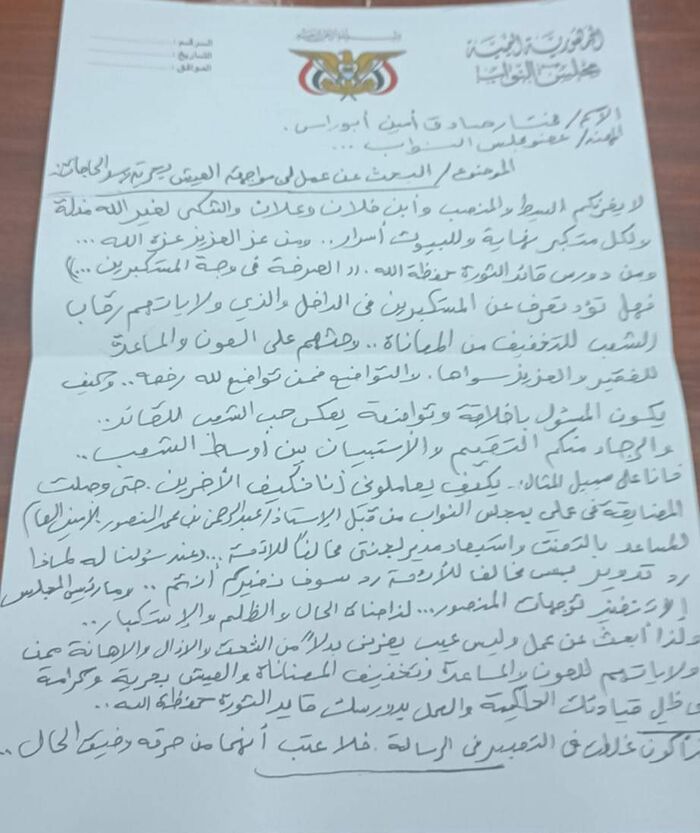 الجمهورية اليمنية
مجلس النواب
الرقم:
التاريخ:
الموافق:
الاسم/ مختار صادق أمين أبوراس.
المهنة/ عضو مجلس النواب ...
الموضوع/ البحث عن عمل لي مواجهة العيش بحرية
لا يغرنكم البسط والمنصب وأبن فلان وعلان والشكى لغير الله مذلة
ولكل متكبر نهاية وللبيوت أسرار .. ومن عز العزيز عزة الله ...
ومن دورس قائد الثورة حفظة الله. (( الصرخة في وجة المستكبرين ... ))
فهل تؤد تعرف عن المستكبرين في الداخل والذي ولاياتهم رقاب
الشعب للتخفيف من المعاناة .. وحثهم على العون والمساعدة
للفقير والعزيز سواها. والتواضع فمن تواضع لله رفعه .. وكيف
يكون المسئول باخلاقة وتواضعة يعكس حب الشعب للقائد ..
والرجاء منكم التقييم والأستبيان بين أوساط الشعب ..
فانا على سبيل المثال. كيف يعاملوني أنا فكيف الأخرين. حتى وصلت
المضايقة في عملي بمجلس النواب من قبل الاستاذ/ عبدالرحمن بن محمد المنصور (الامين العام
المساعد بالتعنت واستبعاد مدير لجنتي مخالفاً للائحة ... (عند سؤلنا له لماذا
رد تدوير ليس مخالف للائحة رد سوف نخبركم أنتم .. وما رئيس المجلس
إلا تنفيذ توجهات المنصور ... لذا ضاق الحال والظلم والاستكبار ..
ولذا أبحث عن عمل وليس عيب يعزني بدلاً من الشحت والاذلال والاهانة ممن
ولاياتهم للعون والمساعدة وتخفيف المعاناة والعيش بحرية وكرامة
في ظل قيادتك الحاكمة والعمل بدورسك قايد الثورة حفظة الله ..
أكون غلطت في التعبير في الرسالة. فلا عتب أنهما من حرقه وضيق الحال ..